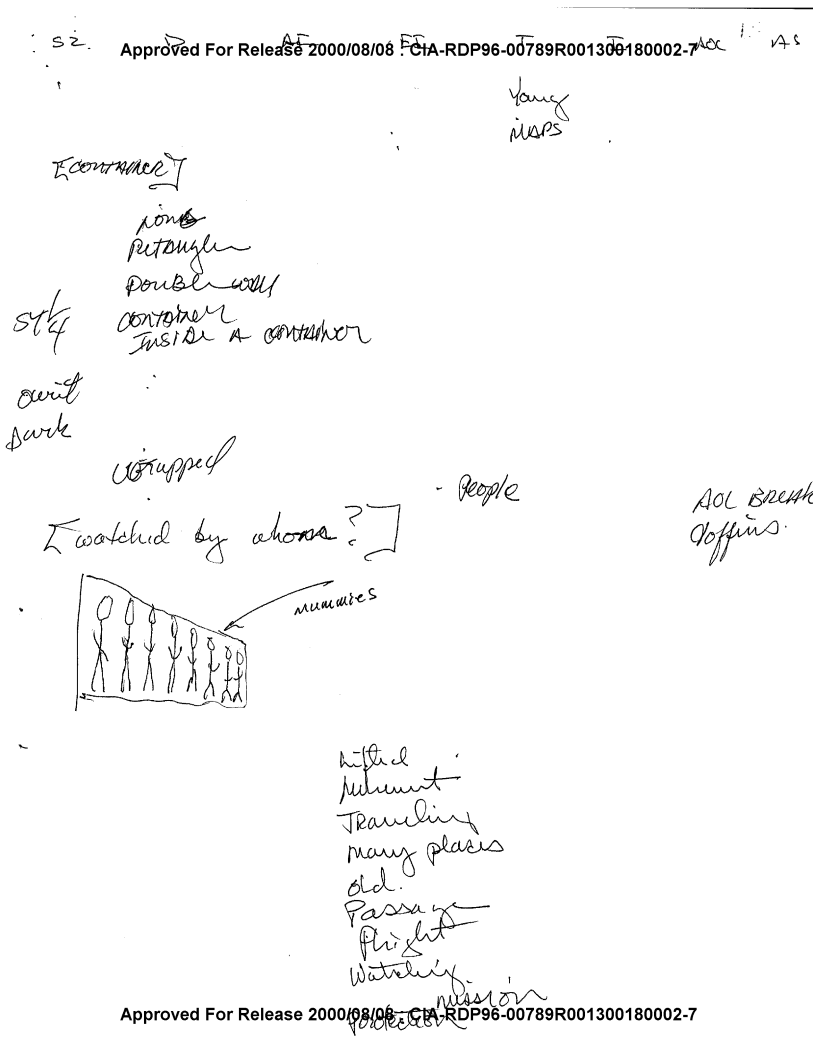 S2. D AI EI T I AOL AS
Approved For Release 2000/08/08 : CIA-RDP96-00789R001300180002-7
Young
MAPS
[CONTAINER]
long
Double wall
container
INSIDE A CONTAINER
Dark
wrapped
- People
AOL BREAK
Coffins.
[watched by whom ?]
mummies
Lifted
TRaveling
many places
old.
Passage
flight
Watching.
mission
protection
Approved For Release 2000/08/08 : CIA-RDP96-00789R001300180002-7